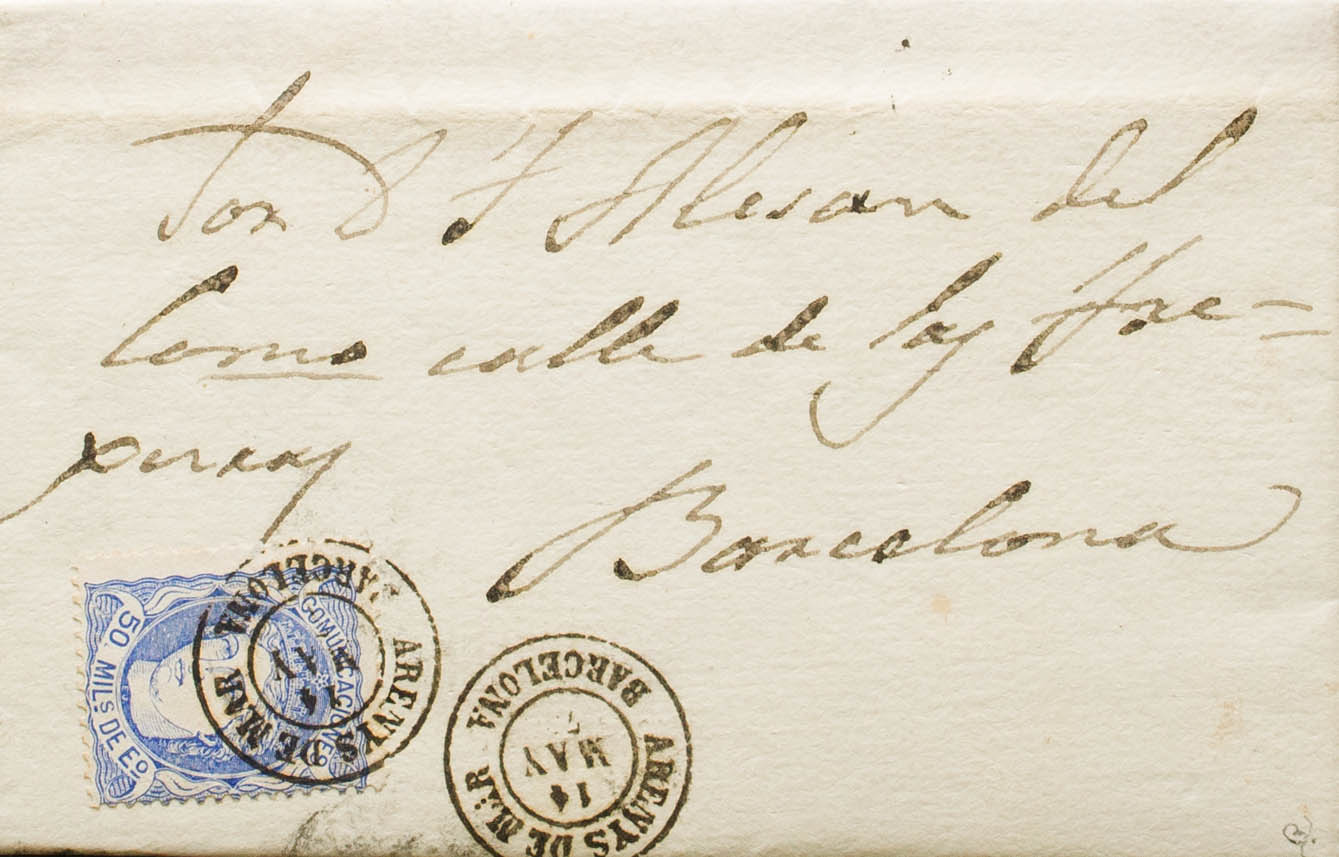 Sor D J Alesan del
Como calle de las Tre-
peras
Barcelona
COMUNICACIONES
50 MILS DE EO
ARENYS DE MAR
BARCELONA
ARENYS DE MAR
14
MAY
BARCELONA